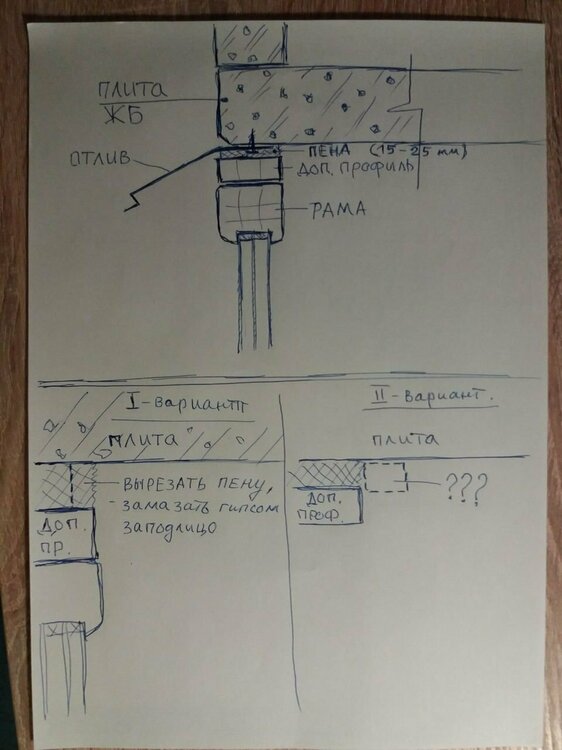 ПЛИТА
ЖБ
ОТЛИВ
ПЕНА (15-25 мм)
ДОП. ПРОФИЛЬ
РАМА
I-вариант
плита
ВЫРЕЗАТЬ ПЕНУ,
ЗАМАЗАТЬ ГИПСОМ
ЗАПОДЛИЦО
ДОП.
ПР.
II-вариант.
ПЛИТА
???
ДОП.
ПРОФ.